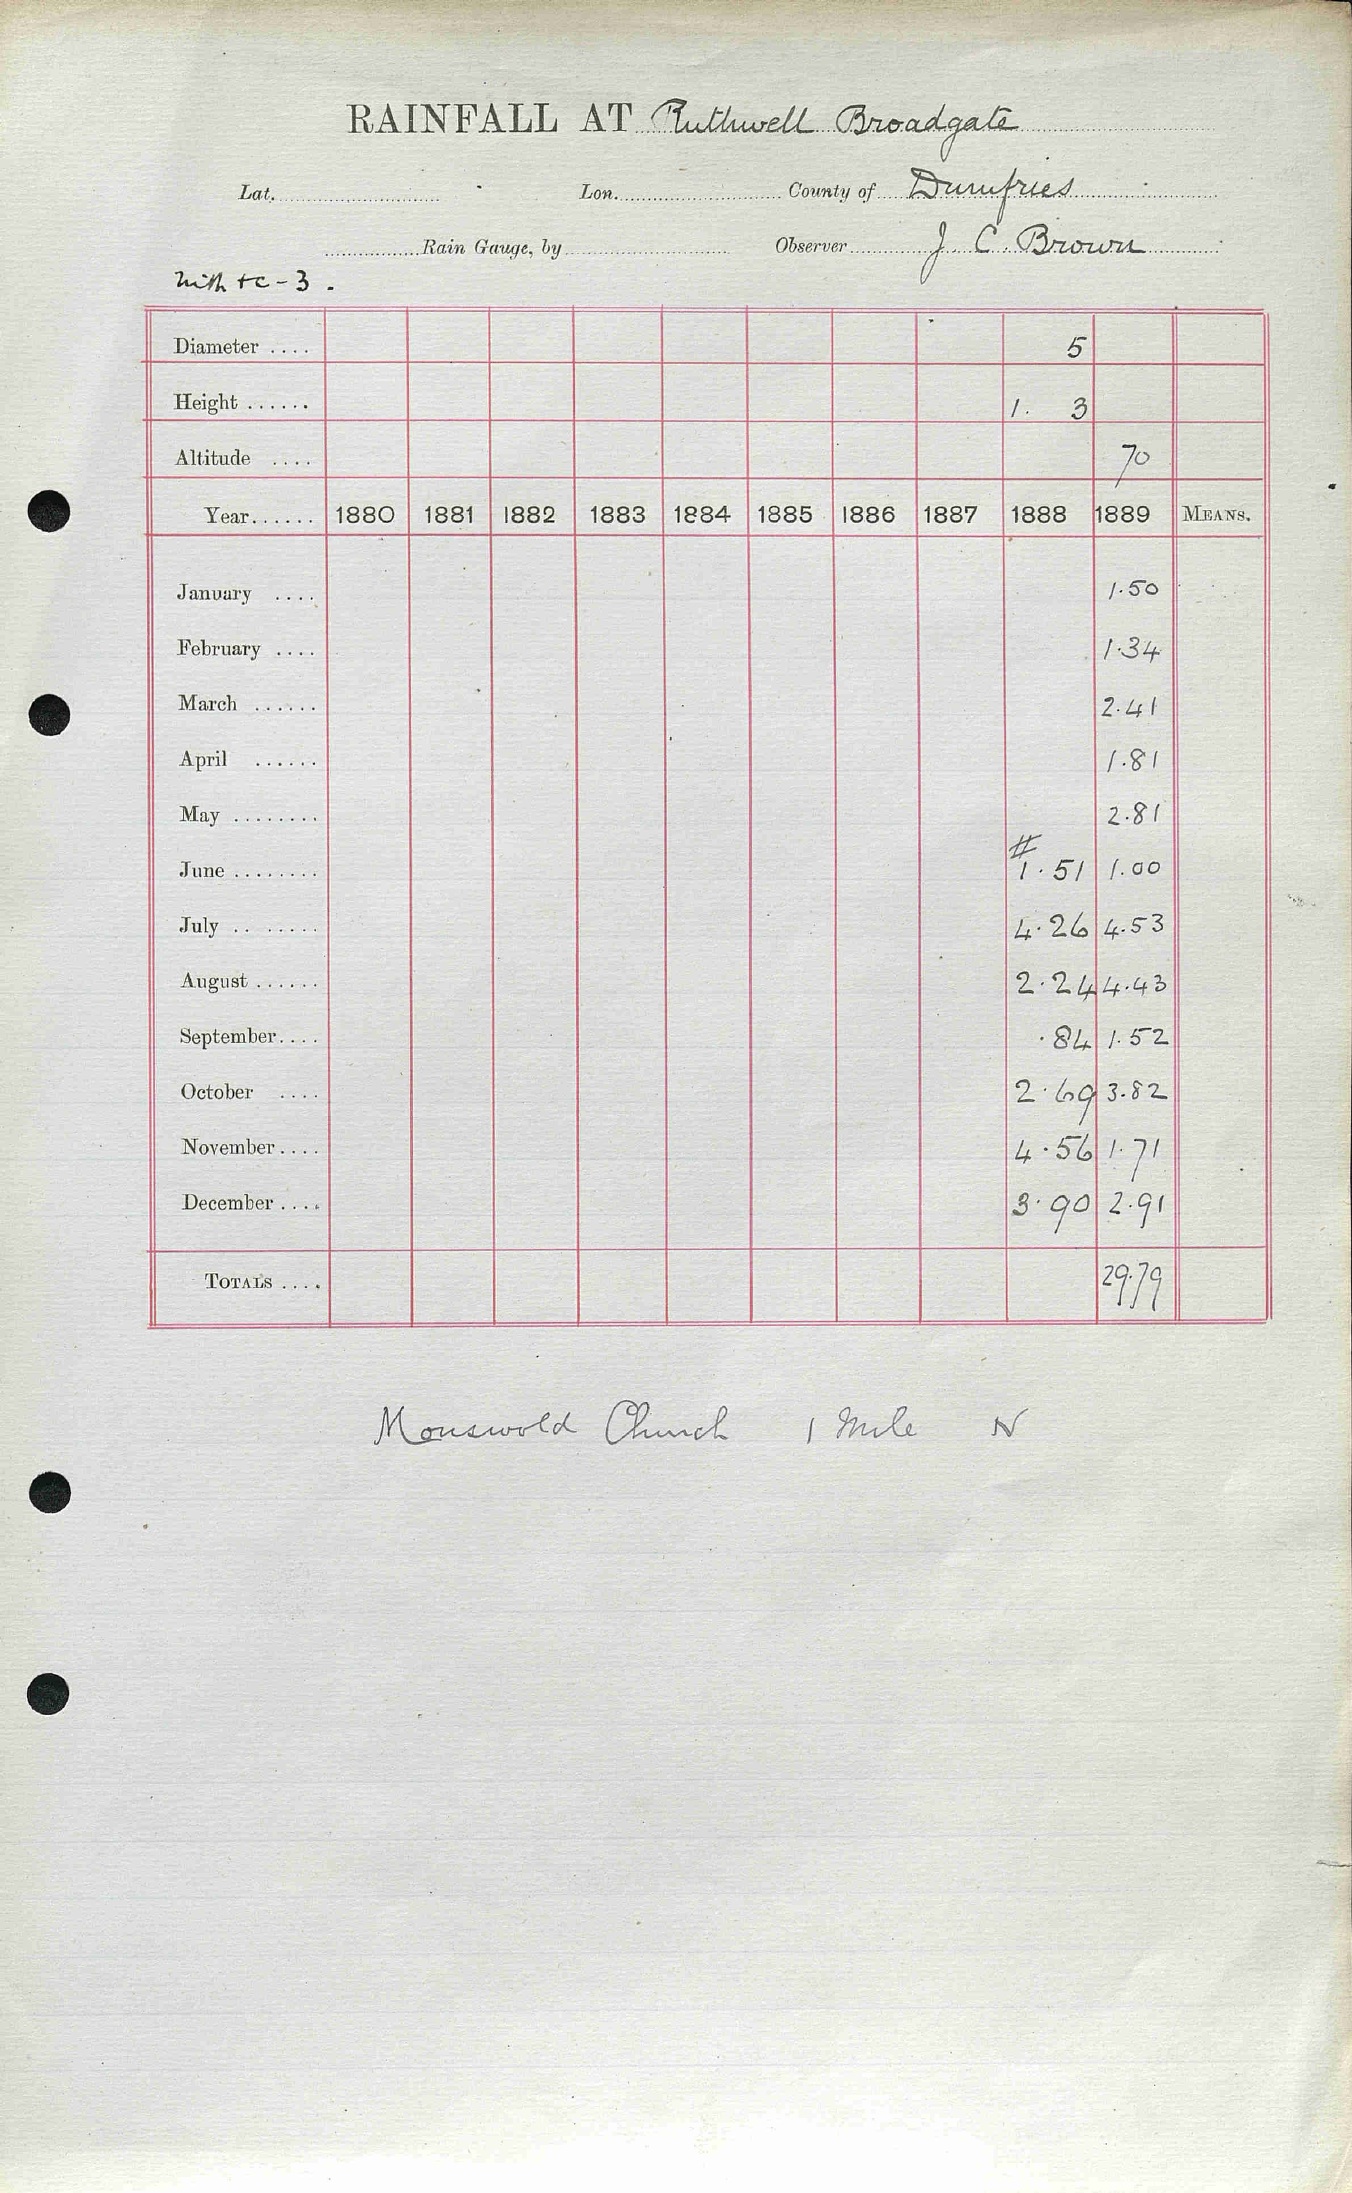 RAINFALL AT Ruthwell Broadgate
Lat. Lon. County of Dumfries
Rain Gauge, by Observer J. C. Brown
- 3.
Diameter .... 5
Height ...... 1. 3
Altitude .... 70
Year...... 1880 1881 1882 1883 1884 1885 1886 1887 1888 1889 MEANS.
January .... 1.50
February .... 1.34
March ...... 2.41
April ...... 1.81
May ........ 2.81
#
June ........ 1.51 1.00
July .. ..... 4.26 4.53
August ...... 2.24 4.43
September.... .84 1.52
October .... 2.69 3.82
November.... 4.56 1.71
December.... 3.90 2.91
TOTALS .... 29.79
Mouswold Church 1 Mile N